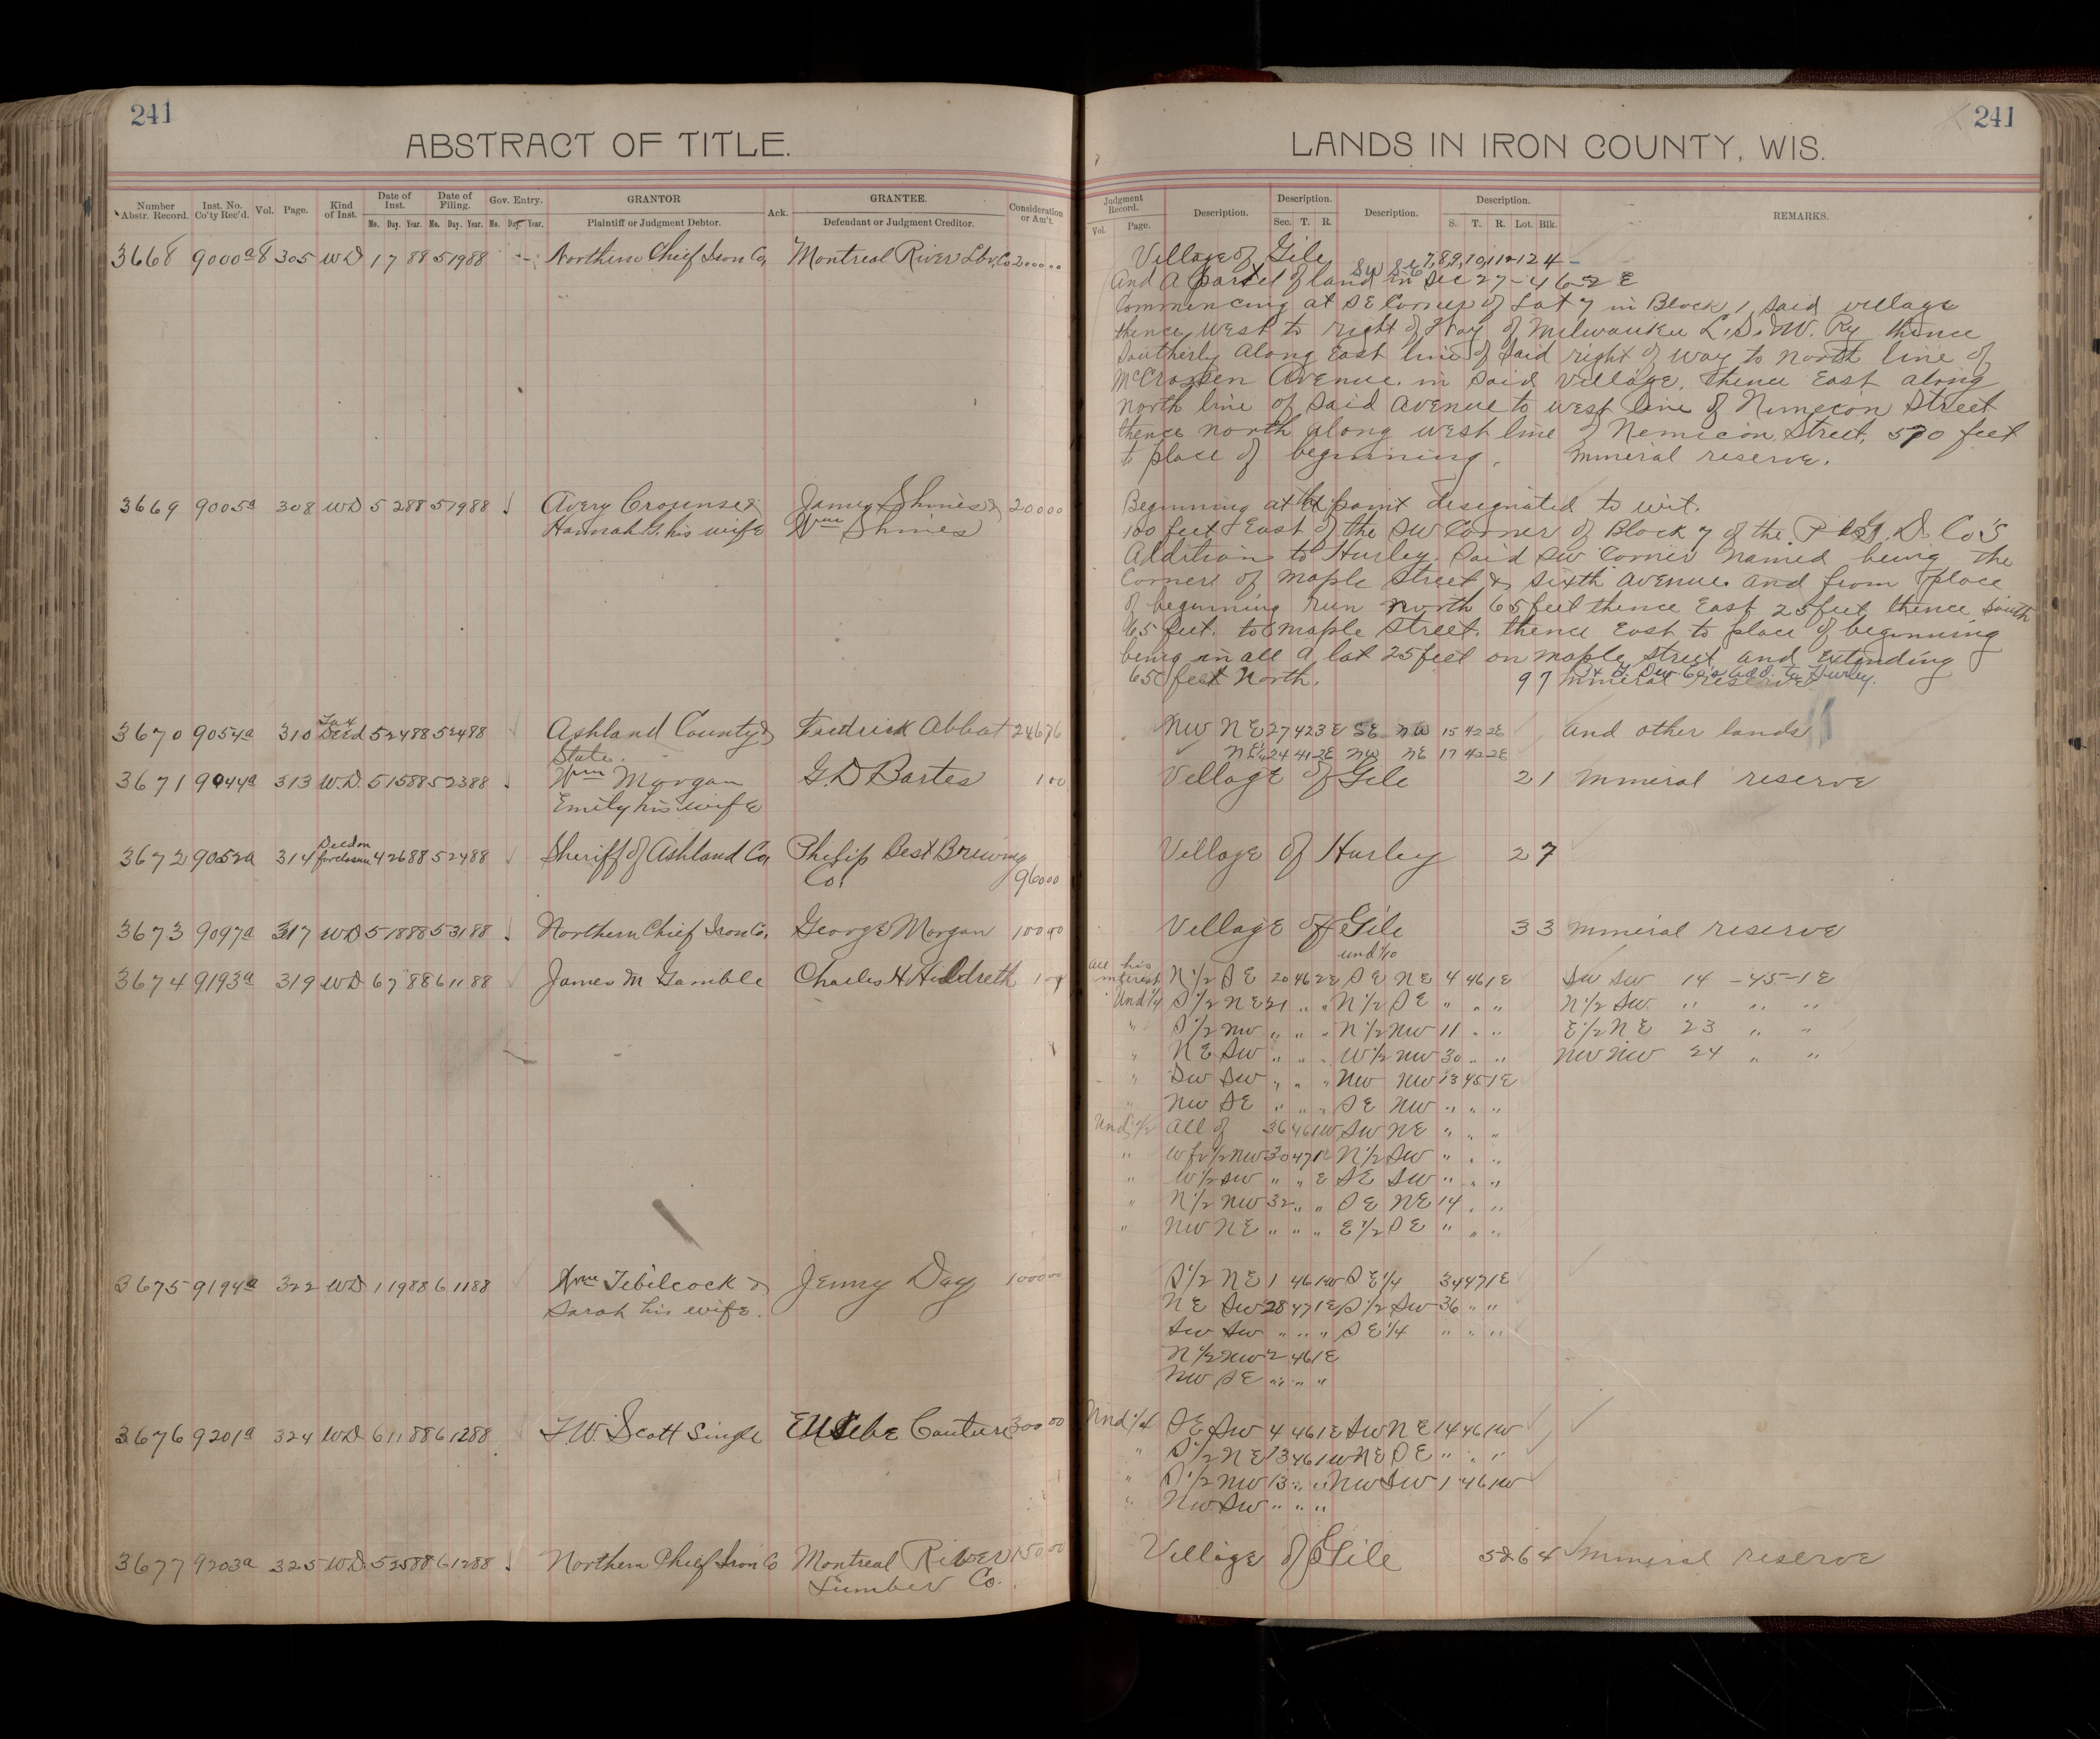 241
ABSTRACT OF TITLE.
Number Abstr. Record. Inst. No. Co'ty Rec'd. Vol. Page. Kind of Inst. Date of Inst. Date of Filing. Gov. Entry. GRANTOR Ack. GRANTEE. Consideration or Am't.
Mo. Day. Year. Mo. Day. Year. Mo. Day. Year. Plaintiff or Judgment Debtor. Defendant or Judgment Creditor.
3668 9000a 8 305 WD 1 7 88 5 19 88 Northern Chief Iron Co, Montreal River Lbr. Co 2000 00
3669 9005a 308 WD 5 2 88 5 19 88 Avery Crounse & James Shines & 200 00
Hannah G. his wife Wm Shines
3670 9054a 310 Tax Deed 5 24 88 5 24 88 Ashland County & Fredrick Abbot 246 76
State.
3671 9044a 313 W.D. 5 15 88 5 23 88 Wm Morgan G.D Bartes 1 00
Emily his wife
3672 9052a 314 Deed on foreclosure 4 26 88 5 24 88 Sheriff of Ashland Co, Phelip Best Brewing
Co. 960 00
3673 9097a 317 WD 5 18 88 5 31 88 Northern Chief Iron Co, George Morgan 100 00
3674 9193a 319 WD 6 7 88 6 11 88 James M Gamble Charles H Hildreth 1 00
3675 9194a 322 WD 1 19 88 6 11 88 Wm Tebilcock & Jenny Day 1000 00
Sarah his wife.
3676 9201a 324 WD 6 11 88 6 12 88 T.W. Scott Single Eusebe Couture 300 00
3677 9203a 325 WD 5 25 88 6 12 88 Northern Chief Iron Co Montreal River 150 00
Lumber Co.
241
LANDS IN IRON COUNTY, WIS.
Judgment Record. Description. Description. Description. Description. REMARKS.
Vol. Page. Sec. T. R. S. T. R. Lot. Blk.
Village of Gile 7,8,9,10,11+12 4 -
And a parcel of land in SW SE Sec 27-46-2 E
Commencing at SE Corner of Lot 7 in Block 1 said village
thence West to right of Way of Milwaukee L.S.&W. Ry thence
Southerly along East line of said right of way to North line of
McCrossen Avenue. in said village, thence East along
North line of said avenue to west line of Nimecon Street
thence north along west line of Nemicon Street, 570 feet
to place of beginning. Mineral reserve.
Beginning at the point designated to wit.
100 feet East of the SW Corner of Block 7 of the D. Co's
Addition to Hurley said SW Corner named being the
Corner of Maple Street & Sixth Avenue and from place
of beginning run North 65 feet thence East 25 feet, thence South
65 feet. to Maple Street. thence East to place of beginning
being in all a lot 25 feet on Maple Street and Extending
65 feet North. 9 7 Mineral reserve Add. to Hurley.
NW NE 27 42 3E SE NW 15 42 2E and other lands
NE¼ 24 41 2E NW NE 17 42 2E
Village of Gile 2 1 Mineral reserve
Village of Hurley 2 7
Village of Gile 3 3 Mineral reserve
All his interest N½ SE 20 46 2E und 1/10 SE NE 4 46 1E SW SW 14 -45-1E
Und ¼ S½ NE 21 " " N½ SE " " " N½ SW. " " "
" S½ NW " " " N½ NW 11 " " E½ NE 23 " "
" NE SW " " " W½ NW 30 " " NW NW 24 " "
" SW SW " " " NW NW 13 45 1E
" NW SE " " " SE NW " " "
Und ½ All of 36 46 1W SW NE " " "
" W fr ½ NW 30 47 1E N½ SW " " "
" W½ SW " " E SE SW " " "
" N½ NW 32 " " SE NE 14 " "
" NW NE " " " E½ SE " " "
S½ NE 1 46 1W SE¼ 34 47 1E
NE SW 28 47 1E S½ SW 36 " "
SW SW " " " SE¼ " " "
N½ NW 2 46 1E
NW SE " " "
Und ½ SE SW 4 46 1E SW NE 14 46 1W
" S½ NE 13 46 1W NE SE " " "
" S½ NW 13 " " NW SW 1 46 1W
" NW SW " " "
Village of Gile 5&6 4 Mineral reserve